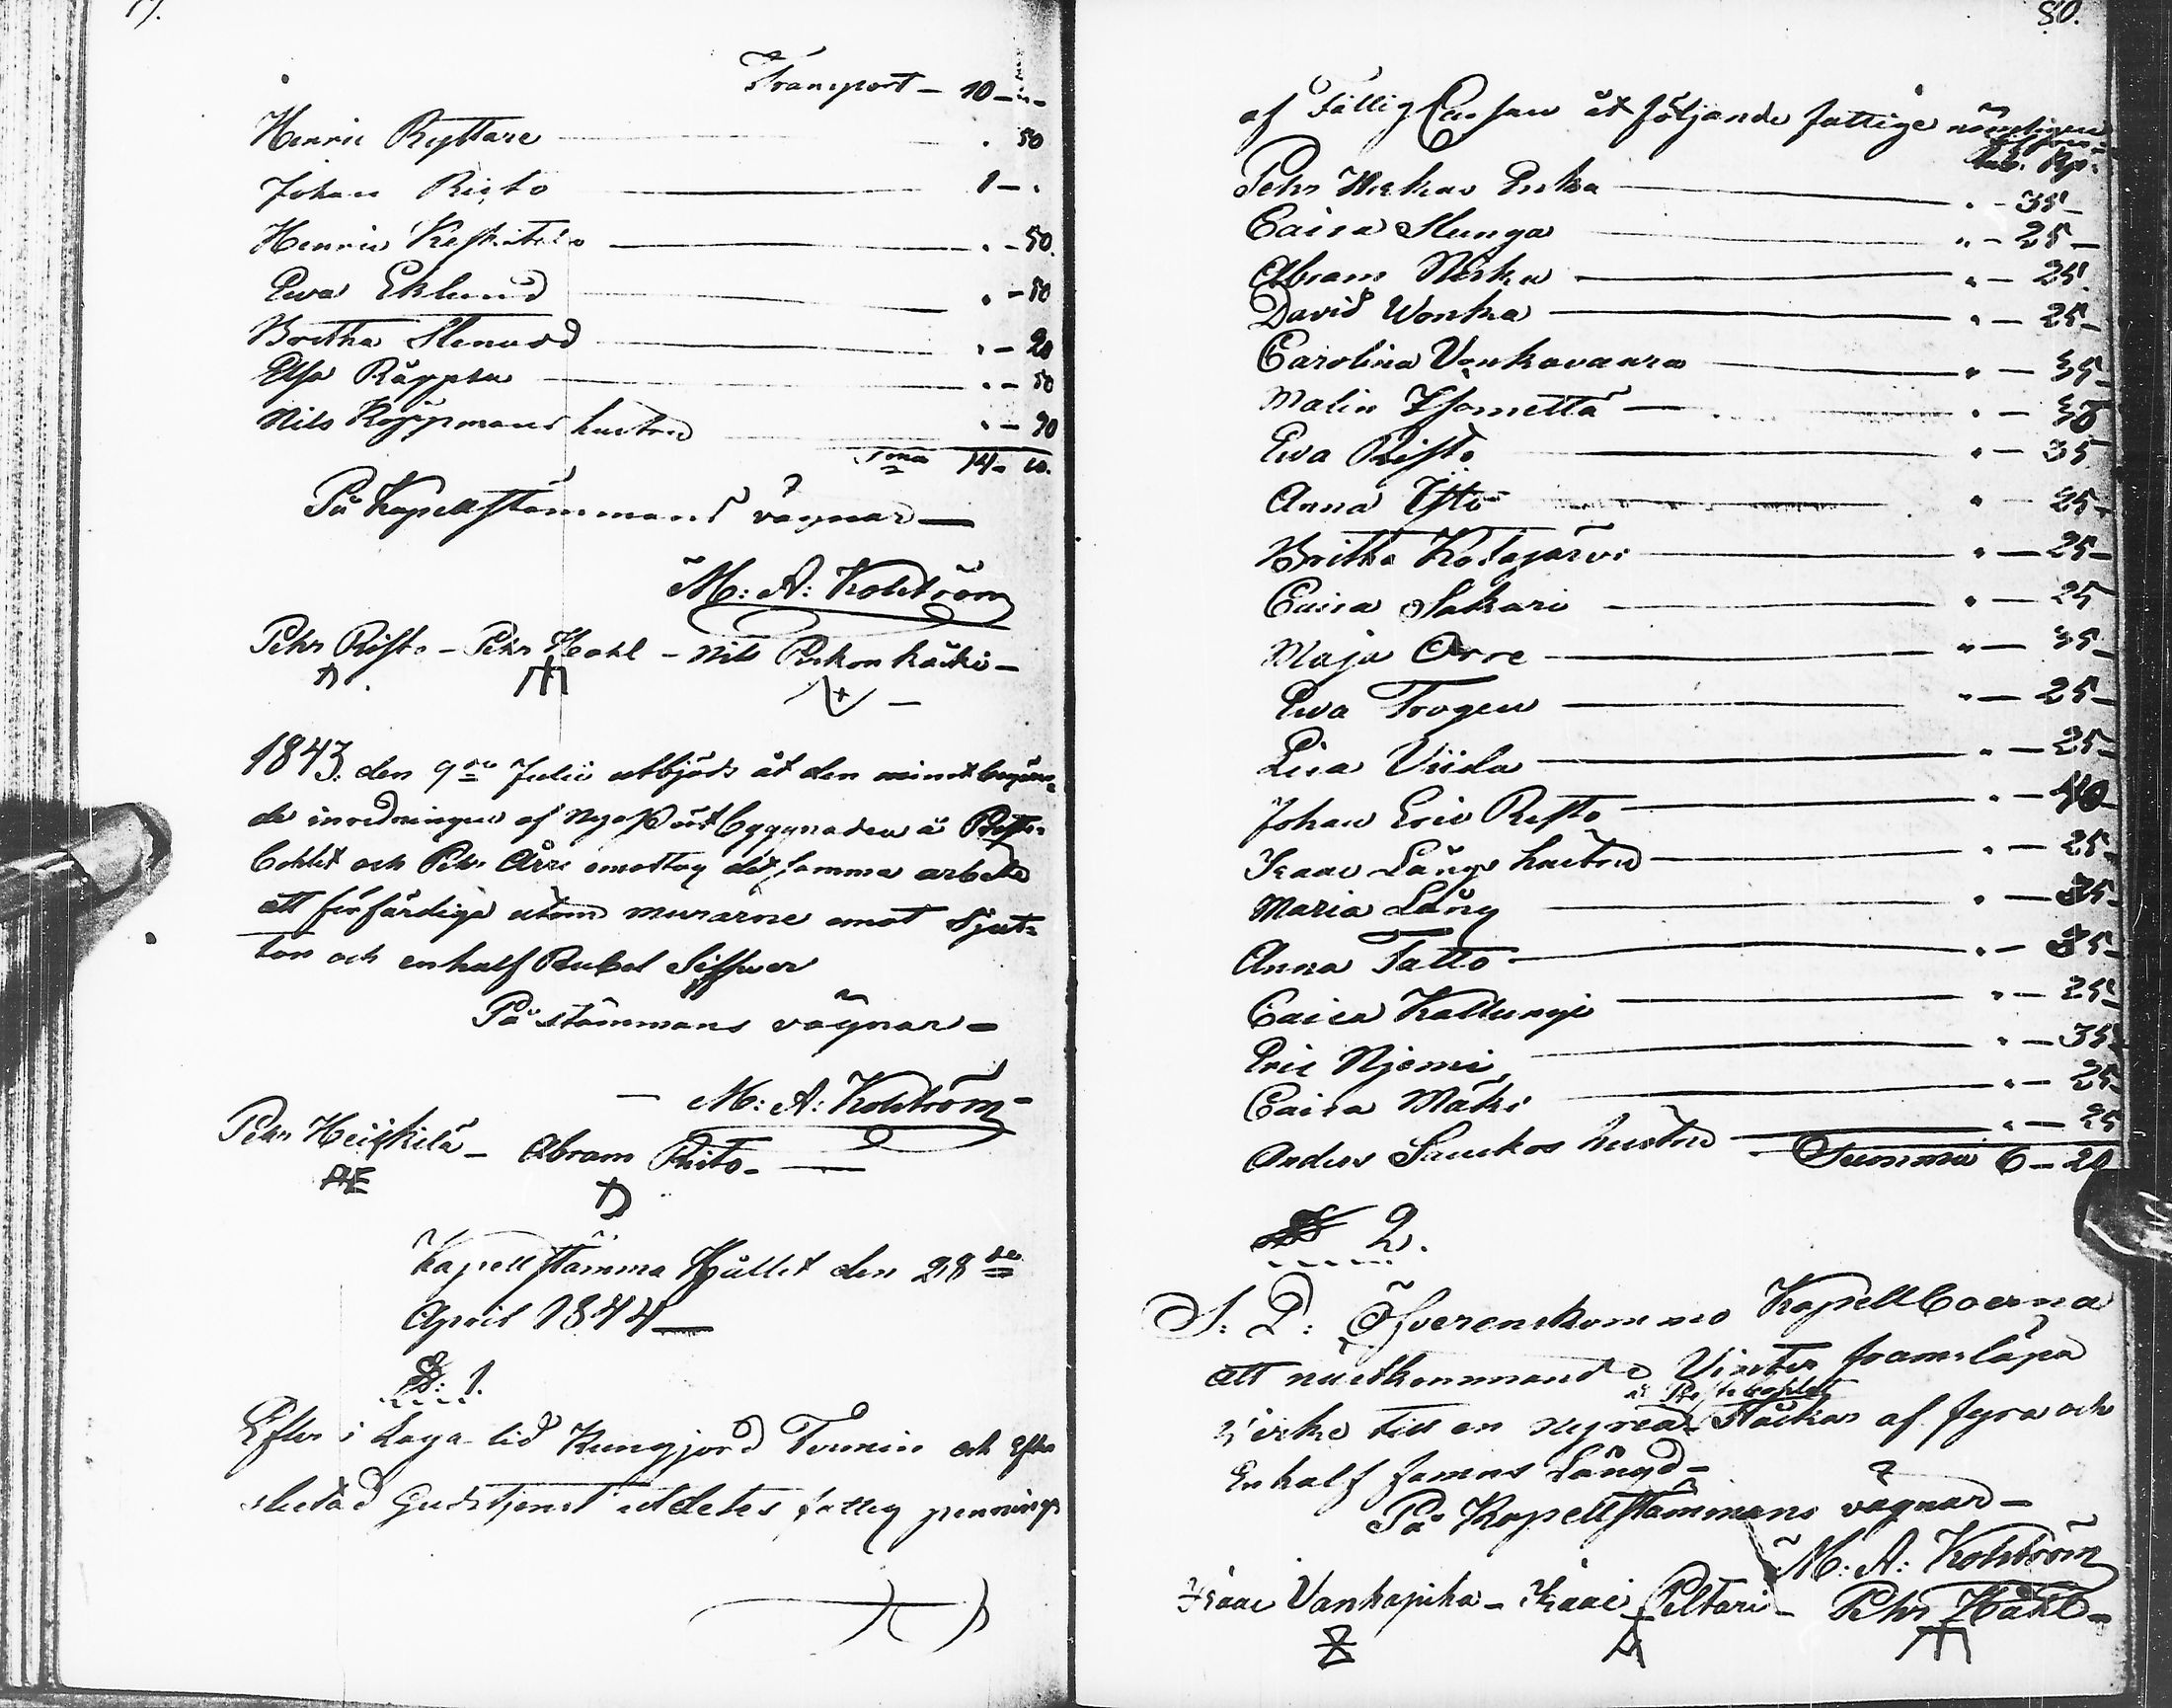 Transport - 10 -
Henric Ryttare . 50
Johan Risto 1 - .
Henric Keskitalo . - 50.
Ewa Eklund . - 50
Britha Stenvad . - 20
Elsa Räppsu . - 50
Nils Köppmans hustru . - 90
Sma 14 - 10.
På Kapellstämmans vägnar —
M: A: Kolström
Pehr Risto - Pehr Håhl - Nils Perkonkäcki -
1843. den 9de Julii utbjöds åt den minstbegäran-
de inredningen af Nya Pörtbyggnaden å Prest-
bohlet och Pehr Årre emottog det samma arbete
att förfärdiga utom murarne emot Sjut-
ton och en half Rubel Silfwer
På stämmans vägnar -
- M: A: Kolström -
Pehr Heikkilä - Abram Risto -
Kapellstämma Hållet den 28de
April 1844 —
§: 1.
Efter i Laga tid Kungjord Termin och efter
slutad Gudstjenst utdeltes fattig penningar
80.
af Fattig Cassan åt följande fattige nämligen
Silfver
Rub. Kop.
Pehr Uckas Enka . - 35 -
Caisa Slunga " - 25 -
Abram Niska " - 25.
David Wonka " - 25 -
Carolina Vonkavaara " - 35 -
Malin Isometta " - 30
Ewa Risto " - 35
Anna Ylto " - 25 -
Britha Kotajärvi " - 25 -
Caisa Sakari " - 25
Maja Orre " - 35 -
Ewa Trogen " - 25 -
Lisa Viida " - 25 -
Johan Eric Risto " - 40 -
Isaac Långs hustru " - 25 -
Maria Lång " - 35 -
Anna Tatto " - 35 -
Caisa Kallungi " - 25 -
Eric Njemi " - 35
Caisa Mäki " - 25
Anders Sauckos hustru " - 25
Summa 6 - 20
§ 2.
S: D: Öfverenskommo Kapellboerna
att nästkommande Vinter framsläpa
å Prestebohlet
virke till en ny rea Stäckar af fyra och
En half famns Längd -
På Kapellstämmans vägnar -
M: A: Kolström
Isaac Vankapika - Isaac Peltari - Pehr Håhl -